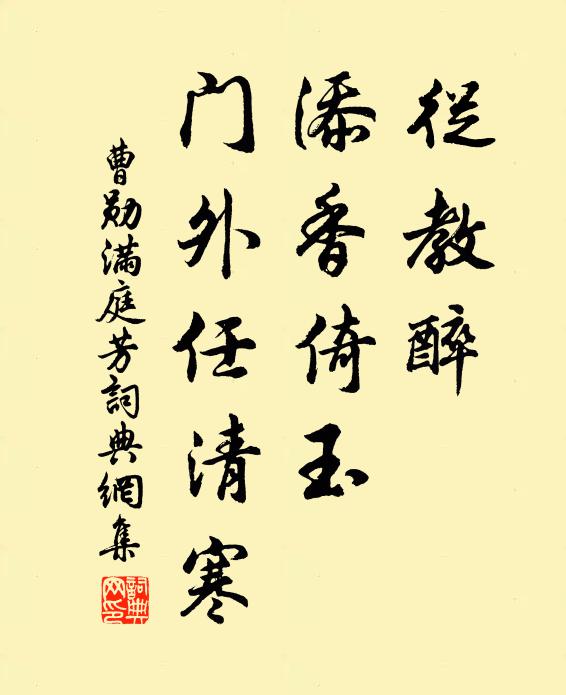 從教醉
添香倚玉
门外任清寒
曹勛滿庭芳詞典網集
詞典网印